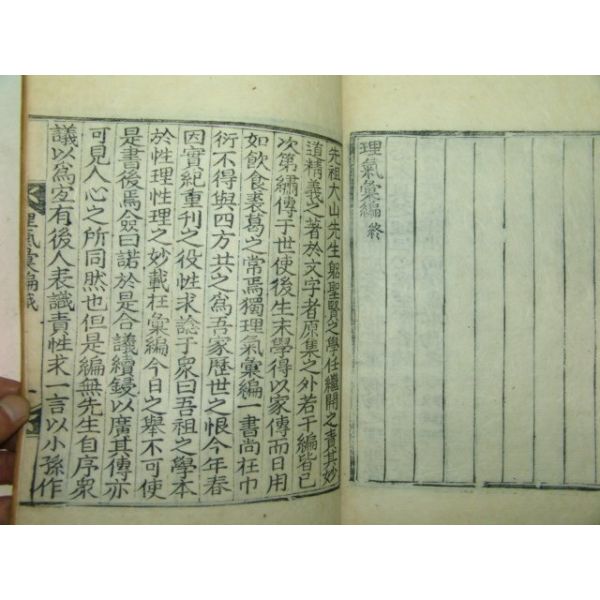 理氣彙編 終
先祖大山先生躬聖賢之學任繼開之責其妙
道精義之著於文字者原集之外若干編皆已
次第繡傳于世使後生末學得以家傳而日用
如飮食裘葛之常焉獨理氣彙編一書尙在巾
衍不得與四方共之爲吾家歷世之恨今年春
因實紀重刊之役性求諗于衆曰吾祖之學本
於性理性理之妙載在彙編今日之舉不可使
是書後焉僉曰諾於是合議續鋟以廣其傳亦
可見人心之所同然也但是編無先生自序衆
議以爲宜有後人表識責性求一言以小孫作
理氣彙編跋